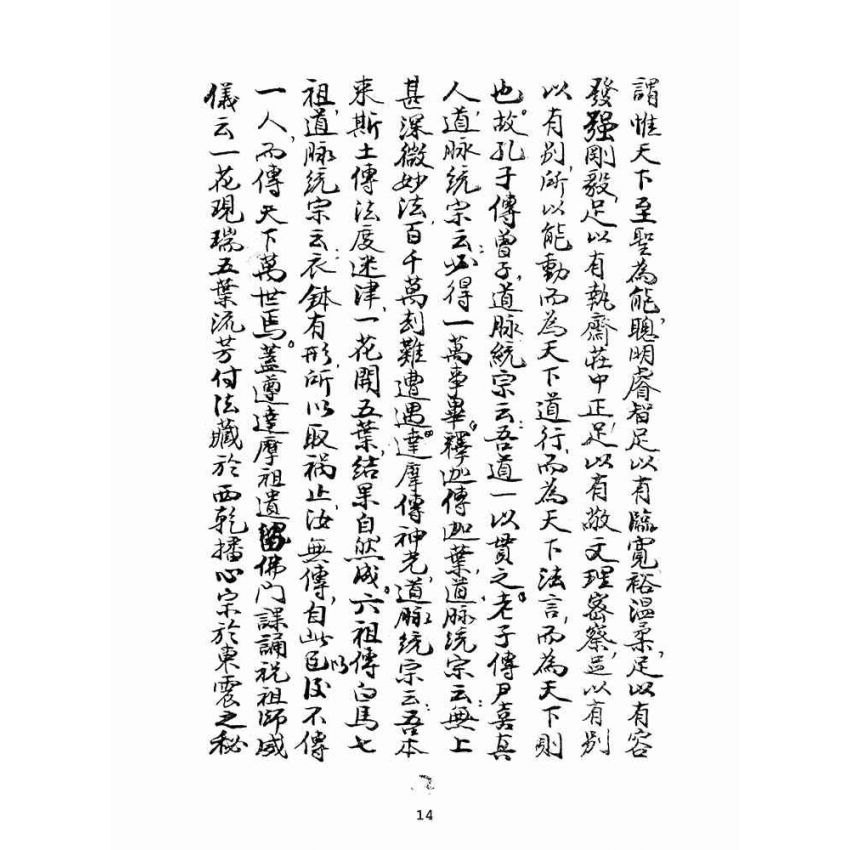 謂惟天下至聖為能聰明睿智足以有臨寬裕溫柔足以有容
發强剛毅足以有執齋莊中正足以有敬文理密察足以有別
以有別所以能動而為天下道行而為天下法言而為天下則
也故孔子傳曾子道脉統宗云吾道一以貫之老子傳尹喜真
人道脉統宗云必得一萬事畢釋迦傳迦葉道脉統宗云無上
甚深微妙法百千萬刼難遭遇達摩傳神光道脉統宗云吾本
来斯土傳法度迷津一花開五葉結果自然成六祖傳白馬七
祖道脉統宗云衣鉢有形所以取禍止汝無傳自此以後不傳
一人而傳天下萬世焉蓋遵達摩祖遺留佛門課誦祝祖師威
儀云一花現瑞五葉流芳付法藏於西乾播心宗於東震之秘
14